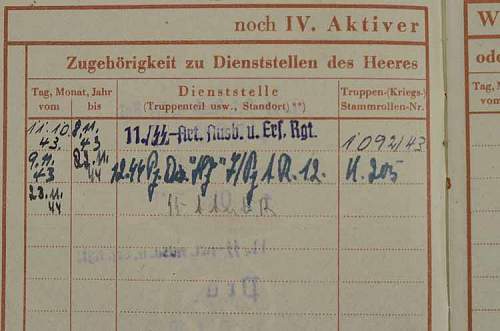 noch IV. Aktiver
W
Zugehörigkeit zu Dienststellen des Heeres
ode
Tag, Monat, Jahr
vom bis
Dienststelle
(Truppenteil usw., Standort)**)
Truppen-(Kriegs-)
Stammrollen-Nr.
Tag, M
vom
11.10. 43. 8.11. 43
11./SS-Art. Ausb. u. Ers. Rgt.
1092/43
9.11. 43 44
12. SS Pz. "HJ" 7/Pz A.R. 12.
K. 205
23.11. 44